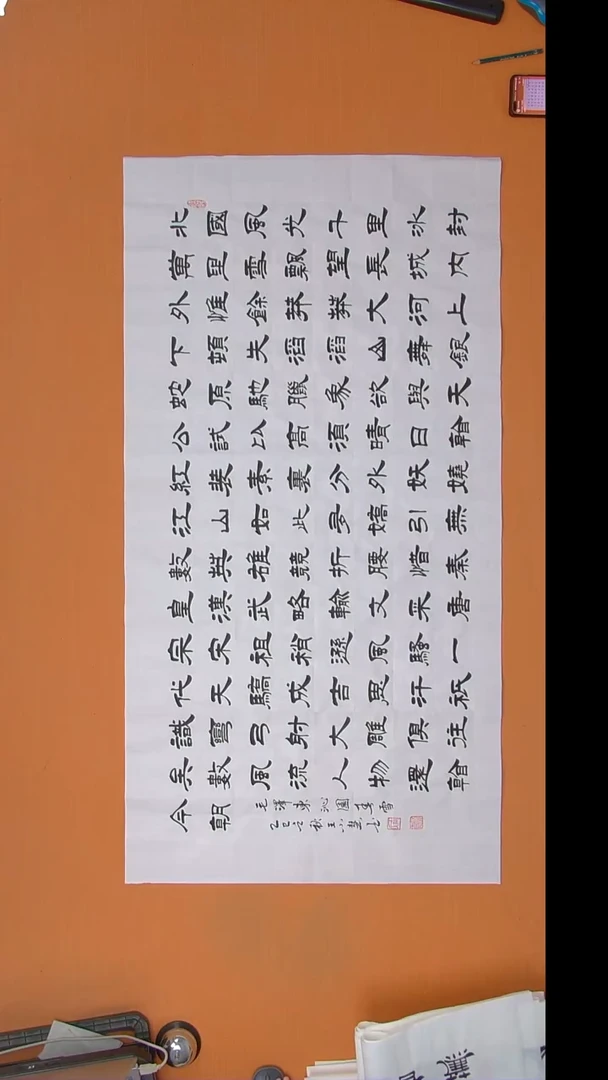 北國風光千里冰封
萬里雪飄望長城內
外惟餘莽莽大河上
下頓失滔滔山舞銀
蛇原馳臘象欲與天
公試比高須晴日看
紅裝素裹分外妖嬈
江山如此多嬌引無
數英雄競折腰惜秦
皇漢武略輸文采唐
宗宋祖稍遜風騷一
代天驕成吉思汗祇
識彎弓射大雕俱往
矣數風流人物還看
今朝
毛澤東沁園春雪
乙巳之秋王小書